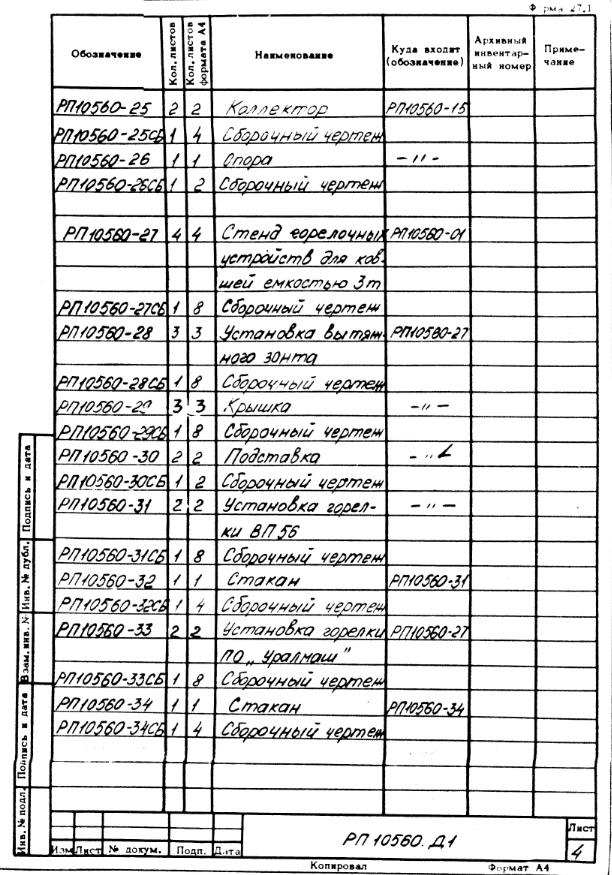 Форма 27.1
Обозначение Кол. листов Кол. листов формата А4 Наименование Куда входит (обозначение) Архивный инвентарный номер Примечание
РП10560-25 2 2 Коллектор РП10560-15
РП10560-25СБ 1 4 Сборочный чертеж
РП10560-26 1 1 Опора -〃-
РП10560-26СБ 1 2 Сборочный чертеж
РП10560-27 4 4 Стенд горелочных РП10560-01
устройств для ков-
шей емкостью 3т
РП10560-27СБ 1 8 Сборочный чертеж
РП10560-28 3 3 Установка вытяж- РП10560-27
ного зонта
РП10560-28СБ 1 8 Сборочный чертеж
РП10560-29 3 3 Крышка -〃-
РП10560-29СБ 1 8 Сборочный чертеж
РП10560-30 2 2 Подставка -〃-
РП10560-30СБ 1 2 Сборочный чертеж
РП10560-31 2 2 Установка горел- -〃-
ки ВП56
РП10560-31СБ 1 8 Сборочный чертеж
РП10560-32 1 1 Стакан РП10560-31
РП10560-32СБ 1 4 Сборочный чертеж
РП10560-33 2 2 Установка горелки РП10560-27
ПО „Уралмаш"
РП10560-33СБ 1 8 Сборочный чертеж
РП10560-34 1 1 Стакан РП10560-34
РП10560-34СБ 1 4 Сборочный чертеж
Подпись и дата
Инв. № дубл.
Взам. инв. №
Подпись и дата
Инв. № подл.
РП 10560. Д1
Лист
4
Изм Лист № докум. Подп. Дата
Копировал Формат А4